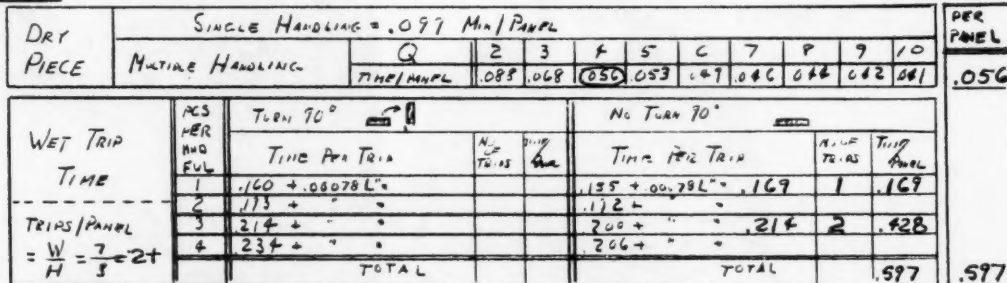 DRY PIECE
SINGLE HANDLING = .097 MIN/PANEL
PER PANEL
MULTIPLE HANDLING
Q 2 3 4 5 6 7 8 9 10
TIME/PANEL .083 .068 .056 .053 .049 .046 .044 .042 .041
.056
WET TRIP TIME
TRIPS/PANEL
= W/H = 7/3 = 2+
PCS PER HND FUL
TURN 90°
NO TURN 90°
TIME PER TRIP
NO. OF TRIPS
TIME PER TRIP
NO. OF TRIPS
TIME/PANEL
1 .160 + .00078L"= .155 + .00078L"= .169 1 .169
2 .193 + " " .192 + " "
3 .214 + " " .200 + " " .214 2 .428
4 .234 + " " .206 + " "
TOTAL TOTAL .597 .597